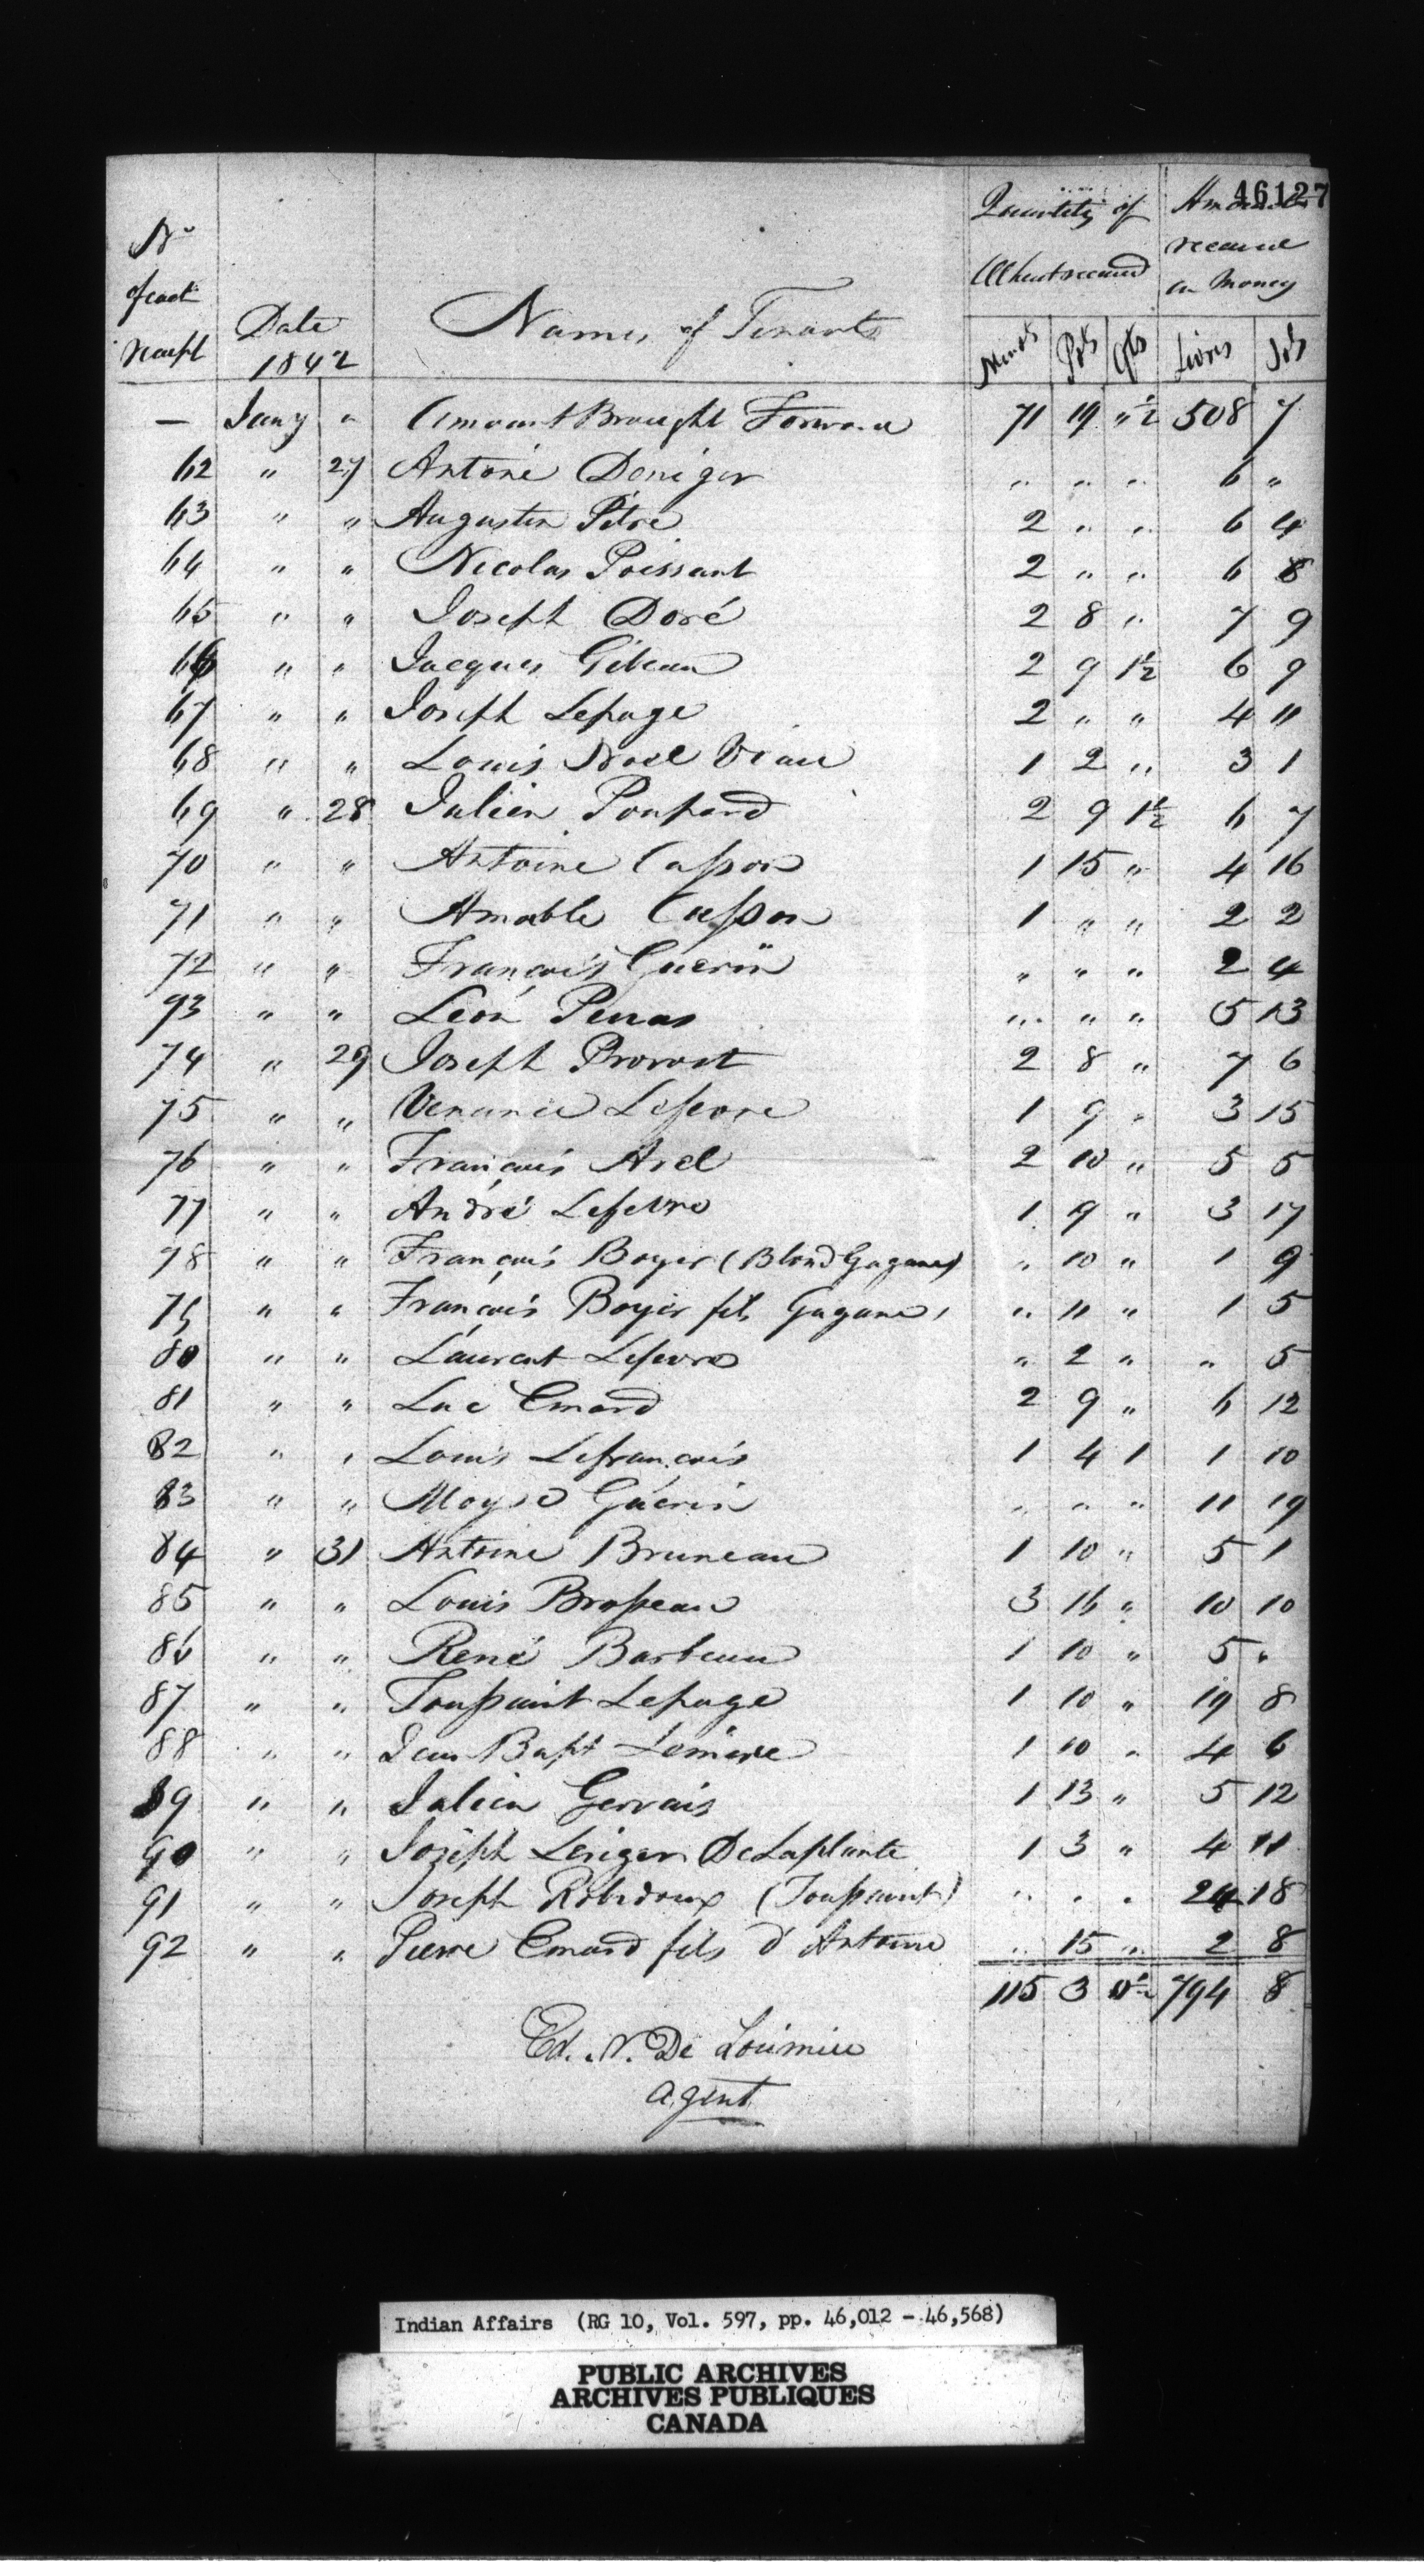 46127
No of each receipt | Date 1842 | Names of Tenants | Quantity of Wheat received | Amount received in Money
Minots | Pots | Qts | Livres | Sols
— Jany " Amount Brought Forward 71 19 " ½ 508 7
62 " 27 Antoine Deniger " " " 6 "
63 " " Augustin Pitre 2 " " 6 4
64 " " Nicolas Poissant 2 " " 6 8
65 " " Joseph Doré 2 8 " 7 9
66 " " Jacques Gibeau 2 9 1½ 6 9
67 " " Joseph Lepage 2 " " 4 11
68 " " Louis Noel Viau 1 2 " 3 1
69 " 28 Julien Poupard 2 9 1½ 6 7
70 " " Antoine Casson 1 15 " 4 16
71 " " Amable Casson 1 " " 2 2
72 " " François Guerin " " " 2 4
73 " " Léon Perras " " " 5 13
74 " 29 Joseph Provost 2 8 " 7 6
75 " " Venance Lefevre 1 9 " 3 15
76 " " François Arel 2 10 " 5 5
77 " " André Lefevre 1 9 " 3 17
78 " " François Boyer (Blond Gagané) " 10 " 1 9
79 " " François Boyer fils Gagané, " 11 " 1 5
80 " " Laurent Lefevre " 2 " " 5
81 " " Luc Emard 2 9 " 6 12
82 " " Louis Lefrançois 1 4 1 1 10
83 " " Moyse Guérin " " " 11 19
84 " 31 Antoine Bruneau 1 10 " 5 1
85 " " Louis Brosseau 3 16 " 10 10
86 " " René Barbeau 1 10 " 5 "
87 " " Toussaint Lepage 1 10 " 19 8
88 " " Jean Bapt Lemière 1 10 " 4 6
89 " " Julien Gervais 1 13 " 5 12
90 " " Joseph Leriger DeLaplante 1 3 " 4 11
91 " " Joseph Robidoux (Toussaint) " " " 24 18
92 " " Pierre Emard fils d'Antoine " 15 " 2 8
115 3 0½ 794 8
Ed. N. De Lorimier
Agent
Indian Affairs (RG 10, Vol. 597, pp. 46,012 - 46,568)
PUBLIC ARCHIVES
ARCHIVES PUBLIQUES
CANADA